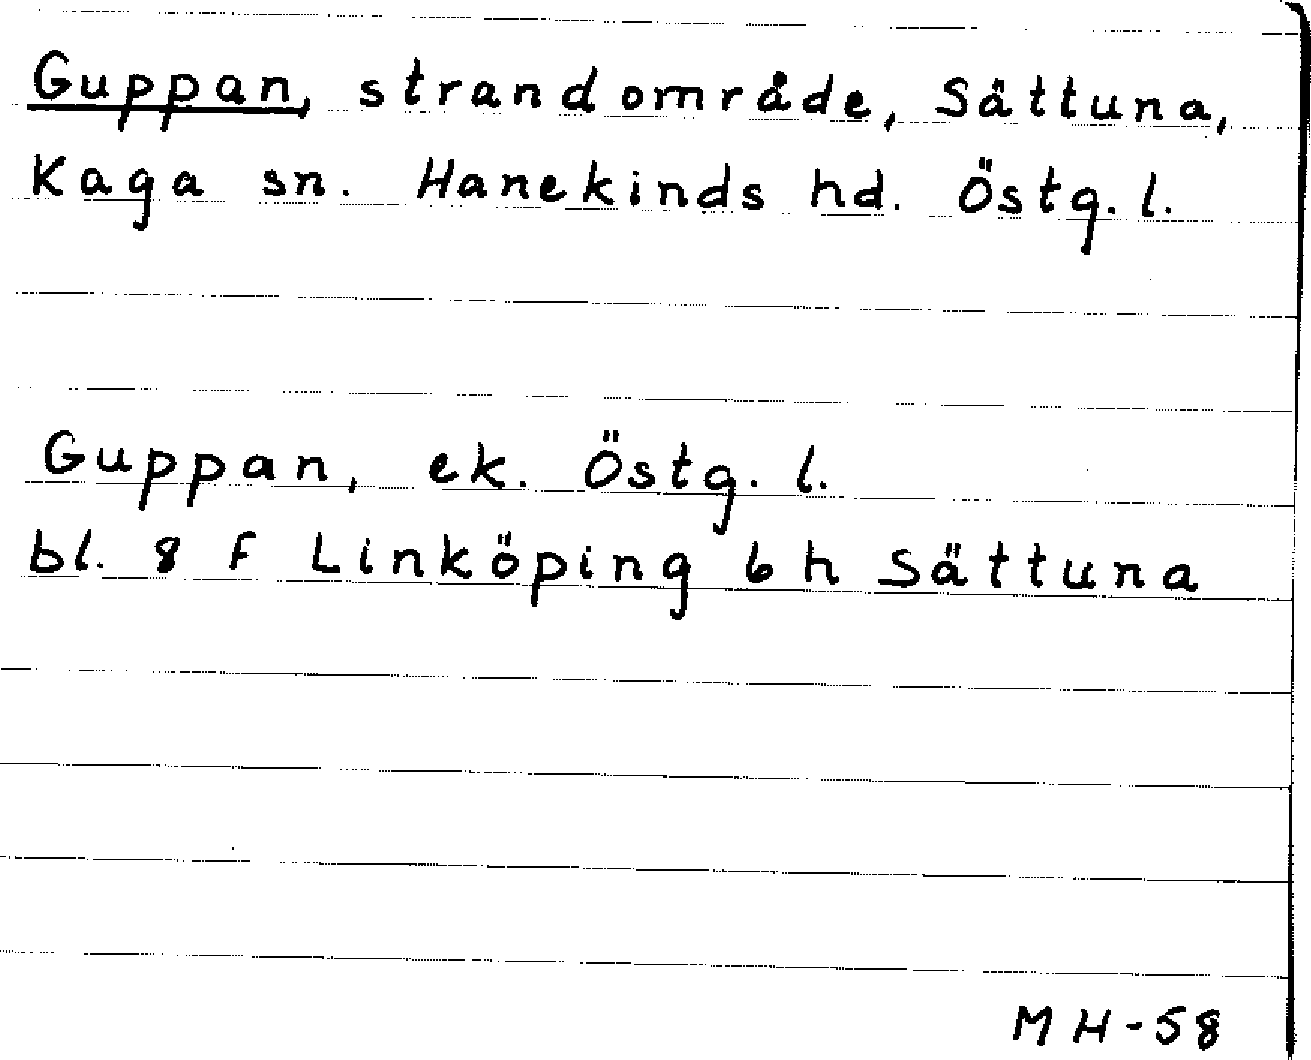 Guppan, strandområde, Sättuna,
Kaga sn. Hanekinds hd. Östg. l.
Guppan, ek. Östg. l.
bl. 8 F Linköping 6 h Sättuna
MH-58